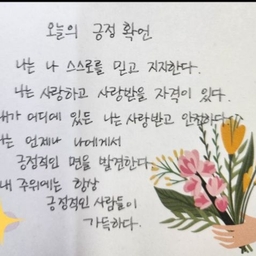 오늘의 긍정 확언
나는 나 스스로를 믿고 지지한다.
나는 사랑하고 사랑받을 자격이 있다.
내가 어디에 있든 나는 사랑받고 안전하다.
나는 언제나 나에게서
긍정적인 면을 발견한다
내 주위에는 항상
긍정적인 사람들이
가득하다.